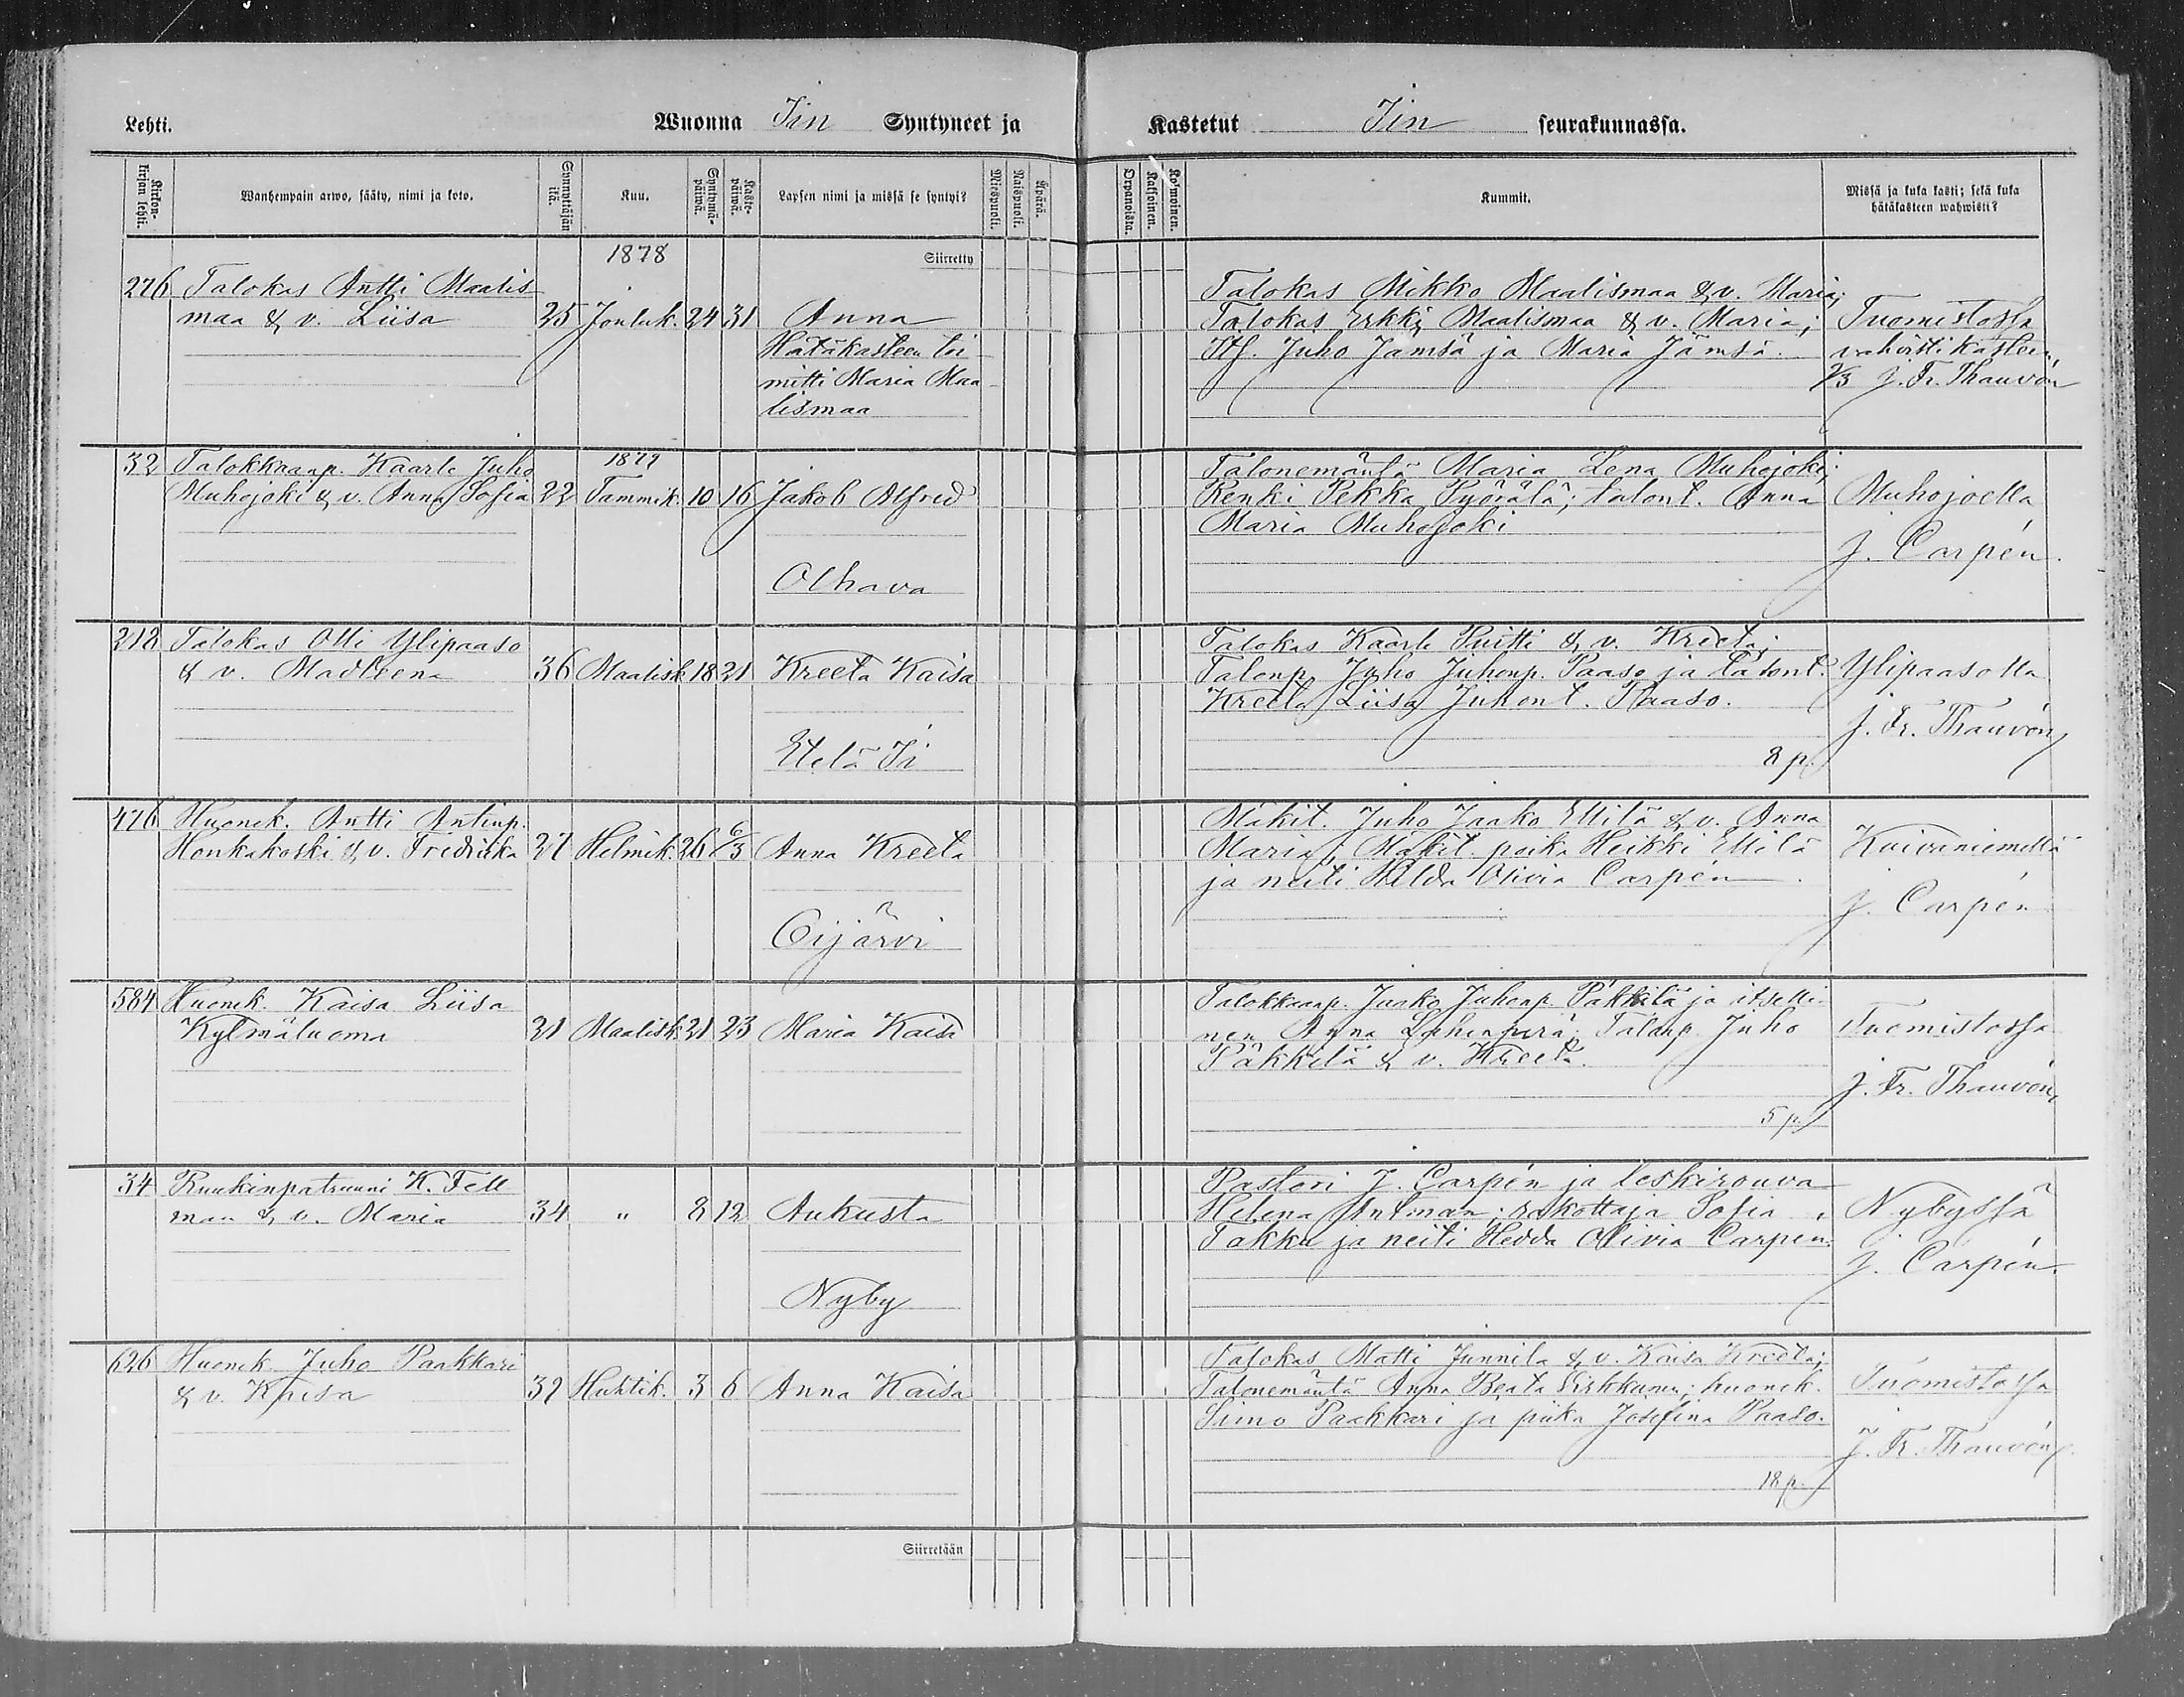 Lehti. Wuonna Iin Syntyneet ja Kastetut Iin seurakunnassa.
Kirkonkirjan lehti.
Wanhempain arwo, sääty, nimi ja koto.
Synnyttäjän ikä.
Kuu.
Syntymäpäiwä.
Kastepäiwä.
Lapsen nimi ja missä se syntyi?
Miespuoli.
Naispuoli.
Äpärä.
Orpanoista.
Kaksoinen.
Kolmoinen.
Kummit.
Missä ja kuka kasti; sekä kuka
hätäkasteen wahwisti?
1878
Siirretty
276 Talokas Antti Maalis
maa & v. Liisa 25 Jouluk. 24 31 Anna
Hätäkasteen toi
mitti Maria Maa
lismaa
Talokas Mikko Maalismaa & v. Maria;
Talokas Erkki Maalismaa & v. Maria;
Itf. Juho Jämsä ja Maria Jämsä.
Tuomistossa
vahvisti kasteen
2/3 J. Fr. Thauvón
32 Talokkaanp. Kaarle Juho
1879
Muhojoki & v. Anna Sofia 22 Tammik. 10 16 Jakob Alfred
Olhava
Talonemäntä Maria Lena Muhojoki;
Renki Pekka Pyörälä; talont. Anna
Maria Muhojoki
Muhojoella
J. Carpén.
218 Talokas Olli Ylipaaso
& v. Madleena 36 Maalisk. 18 21 Kreeta Kaisa
Etelä Ii
Talokas Kaarle Puitti & v. Kreeta;
Talonp. Juho Juhonp. Paaso ja talont.
Kreeta Liisa Juhont. Paaso.
8 p.
Ylipaasolla
J. Fr. Thauvón
476 Huonek. Antti Antinp.
Honkakoski & v. Fredrika 27 Helmik. 26 6/3 Anna Kreeta
Oijärvi
Mäkit. Juho Jaako Ellilä & v. Anna
Maria; Mäkit. poika Heikki Ellilä
ja neiti Hilda Olivia Carpén.
Kuivaniemellä
J. Carpén
584 Huonek. Kaisa Liisa
Kylmäluoma 21 Maalisk. 21 23 Maria Kaisa
Talokkaanp. Jaako Juhonp. Päkkilä ja itselli
nen Anna Lahenperä; Talonp. Juho
Päkkilä & v. Kreeta.
5 p.
Tuomistossa
J. Fr. Thauvón
34 Ruukinpatruuni K. Fell
man & v. Maria 34 " 8 12 Aukusta
Nyby
Pastori J. Carpén ja leskirouva
Helena Antman; Sofia
Takku ja neiti Hedda Olivia Carpén.
Nybyssä
J. Carpén.
626 Huonek. Juho Paakkari
& v. Kaisa 32 Huhtik. 3 6 Anna Kaisa
Talokas Matti Junnila & v. Kaisa Kreeta;
Talonemäntä Anna Beata; huonek.
Simo Paakkari ja piika Josefina Paaso.
18 p.
Tuomistossa
J. Fr. Thauvón
Siirretään